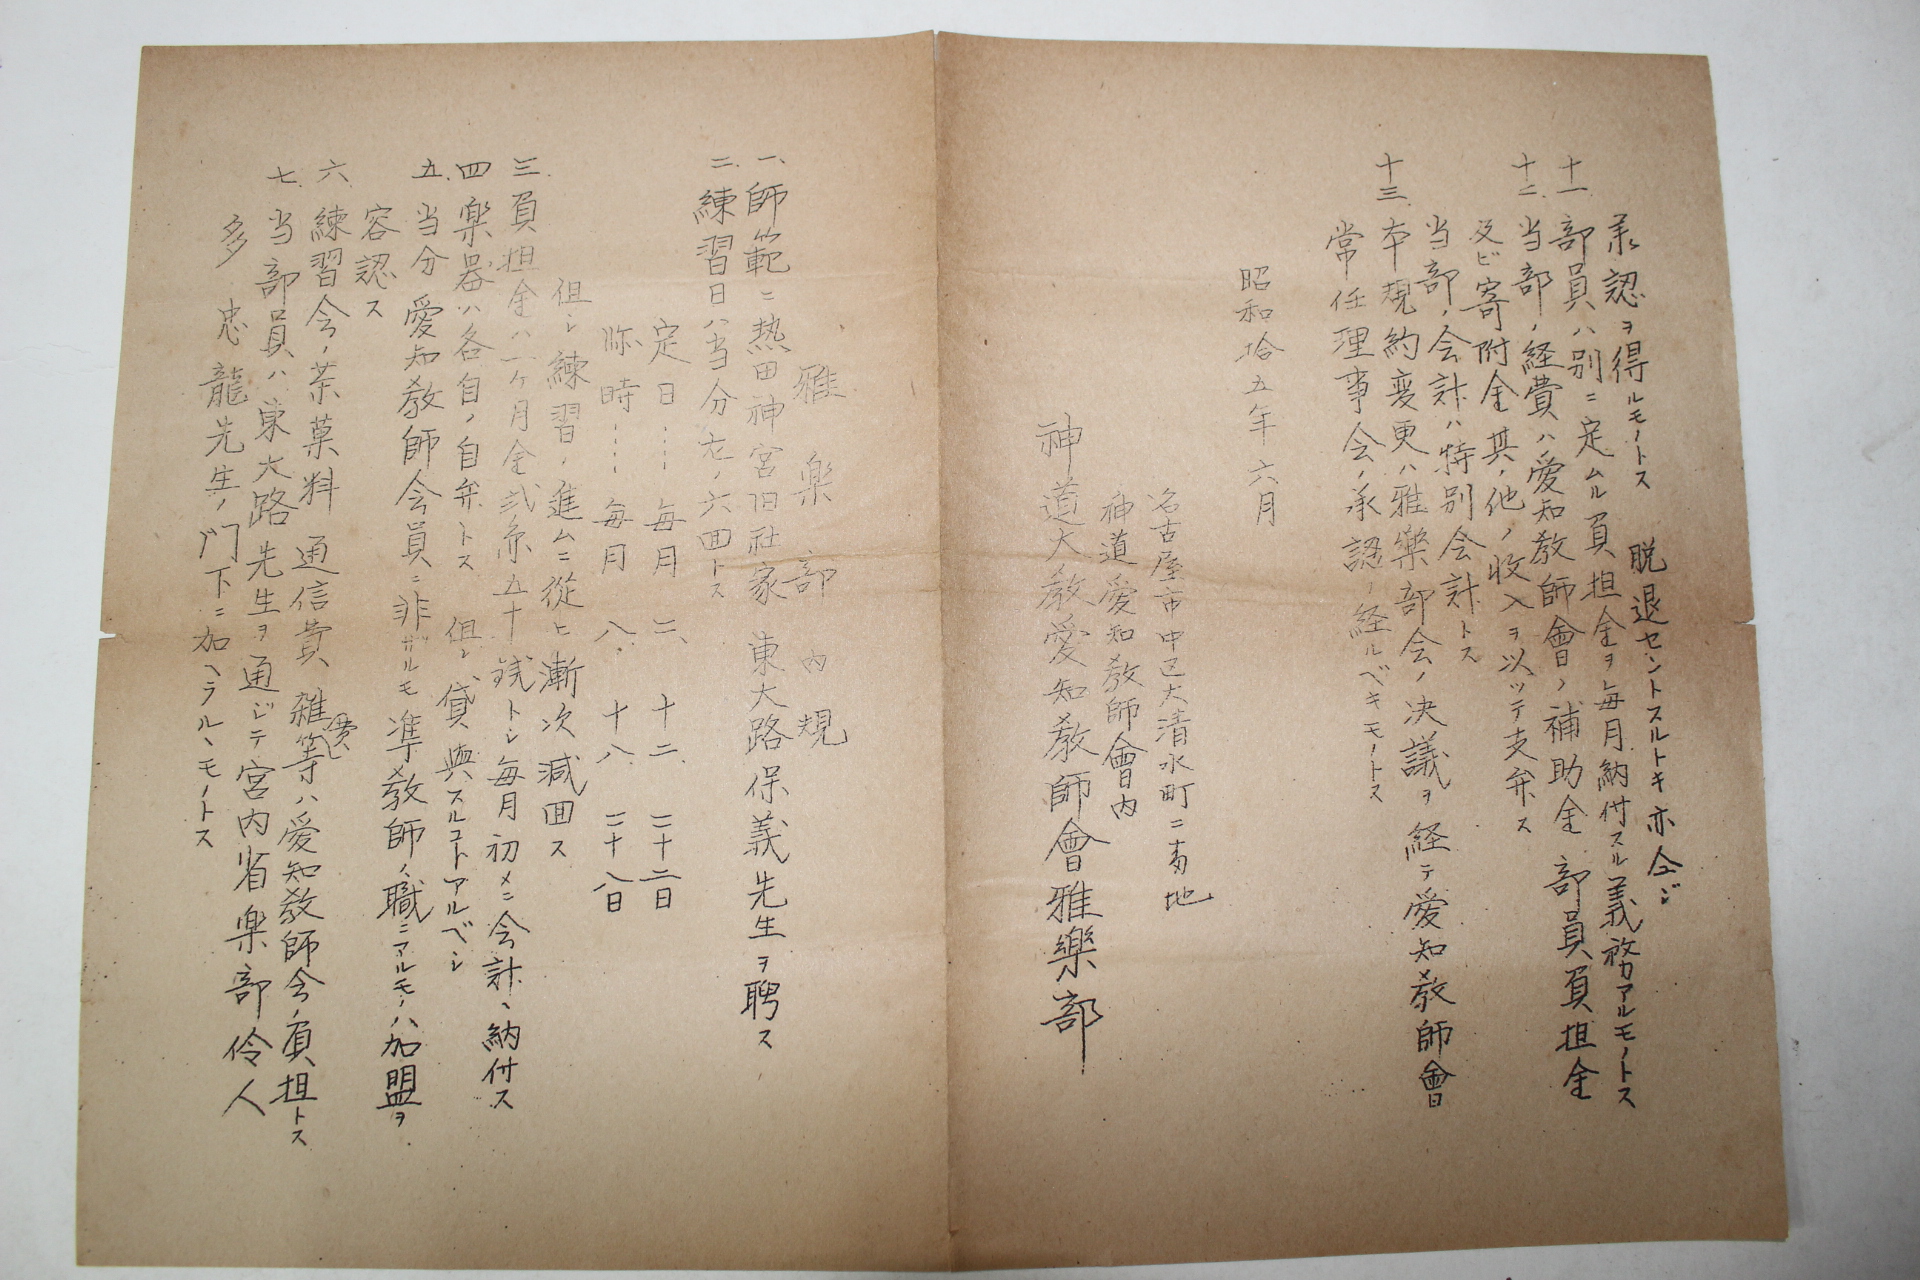 承認ヲ得ルモノトス　脱退セントスルトキ亦仝ジ
十一、部員ハ別ニ定ムル負担金ヲ毎月納付スル義務アルモノトス
十二、当部ノ経費ハ愛知教師會ノ補助金　部員負担金
及ビ寄附金其ノ他ノ収入ヲ以ッテ支弁ス
当部ノ会計ハ特別会計トス
十三、本規約変更ハ雅樂部会ノ決議ヲ経テ愛知教師會
常任理事会ノ承認ノ経ルベキモノトス
昭和拾五年六月
名古屋市中区大清水町二番地
神道愛知教師會内
神道大教愛知教師會雅樂部
雅楽部内規
一、師範ニ熱田神宮旧社家　東大路保義先生ヲ聘ス
二、練習日ハ当分左ノ六回トス
定日……毎月　二、十二、二十二日
臨時……毎月　八、十八、二十八日
但シ練習ノ進ムニ從ヒ漸次減回ス
三、負担金ハ一ヶ月金弐円五十銭トシ毎月初メニ会計ヘ納付ス
四、楽器ハ各自ノ自弁トス　但シ貸與スルコトアルベシ
五、当分愛知教師会員ニ非ザルモ準教師ノ職ニアルモノハ加盟ヲ
容認ス
六、練習会ノ茶菓料　通信費　雑費等ハ愛知教師会ノ負担トス
七、当部員ハ東大路先生ヲ通ジテ宮内省楽部伶人
多　忠龍先生ノ門下ニ加ヘラルヽモノトス